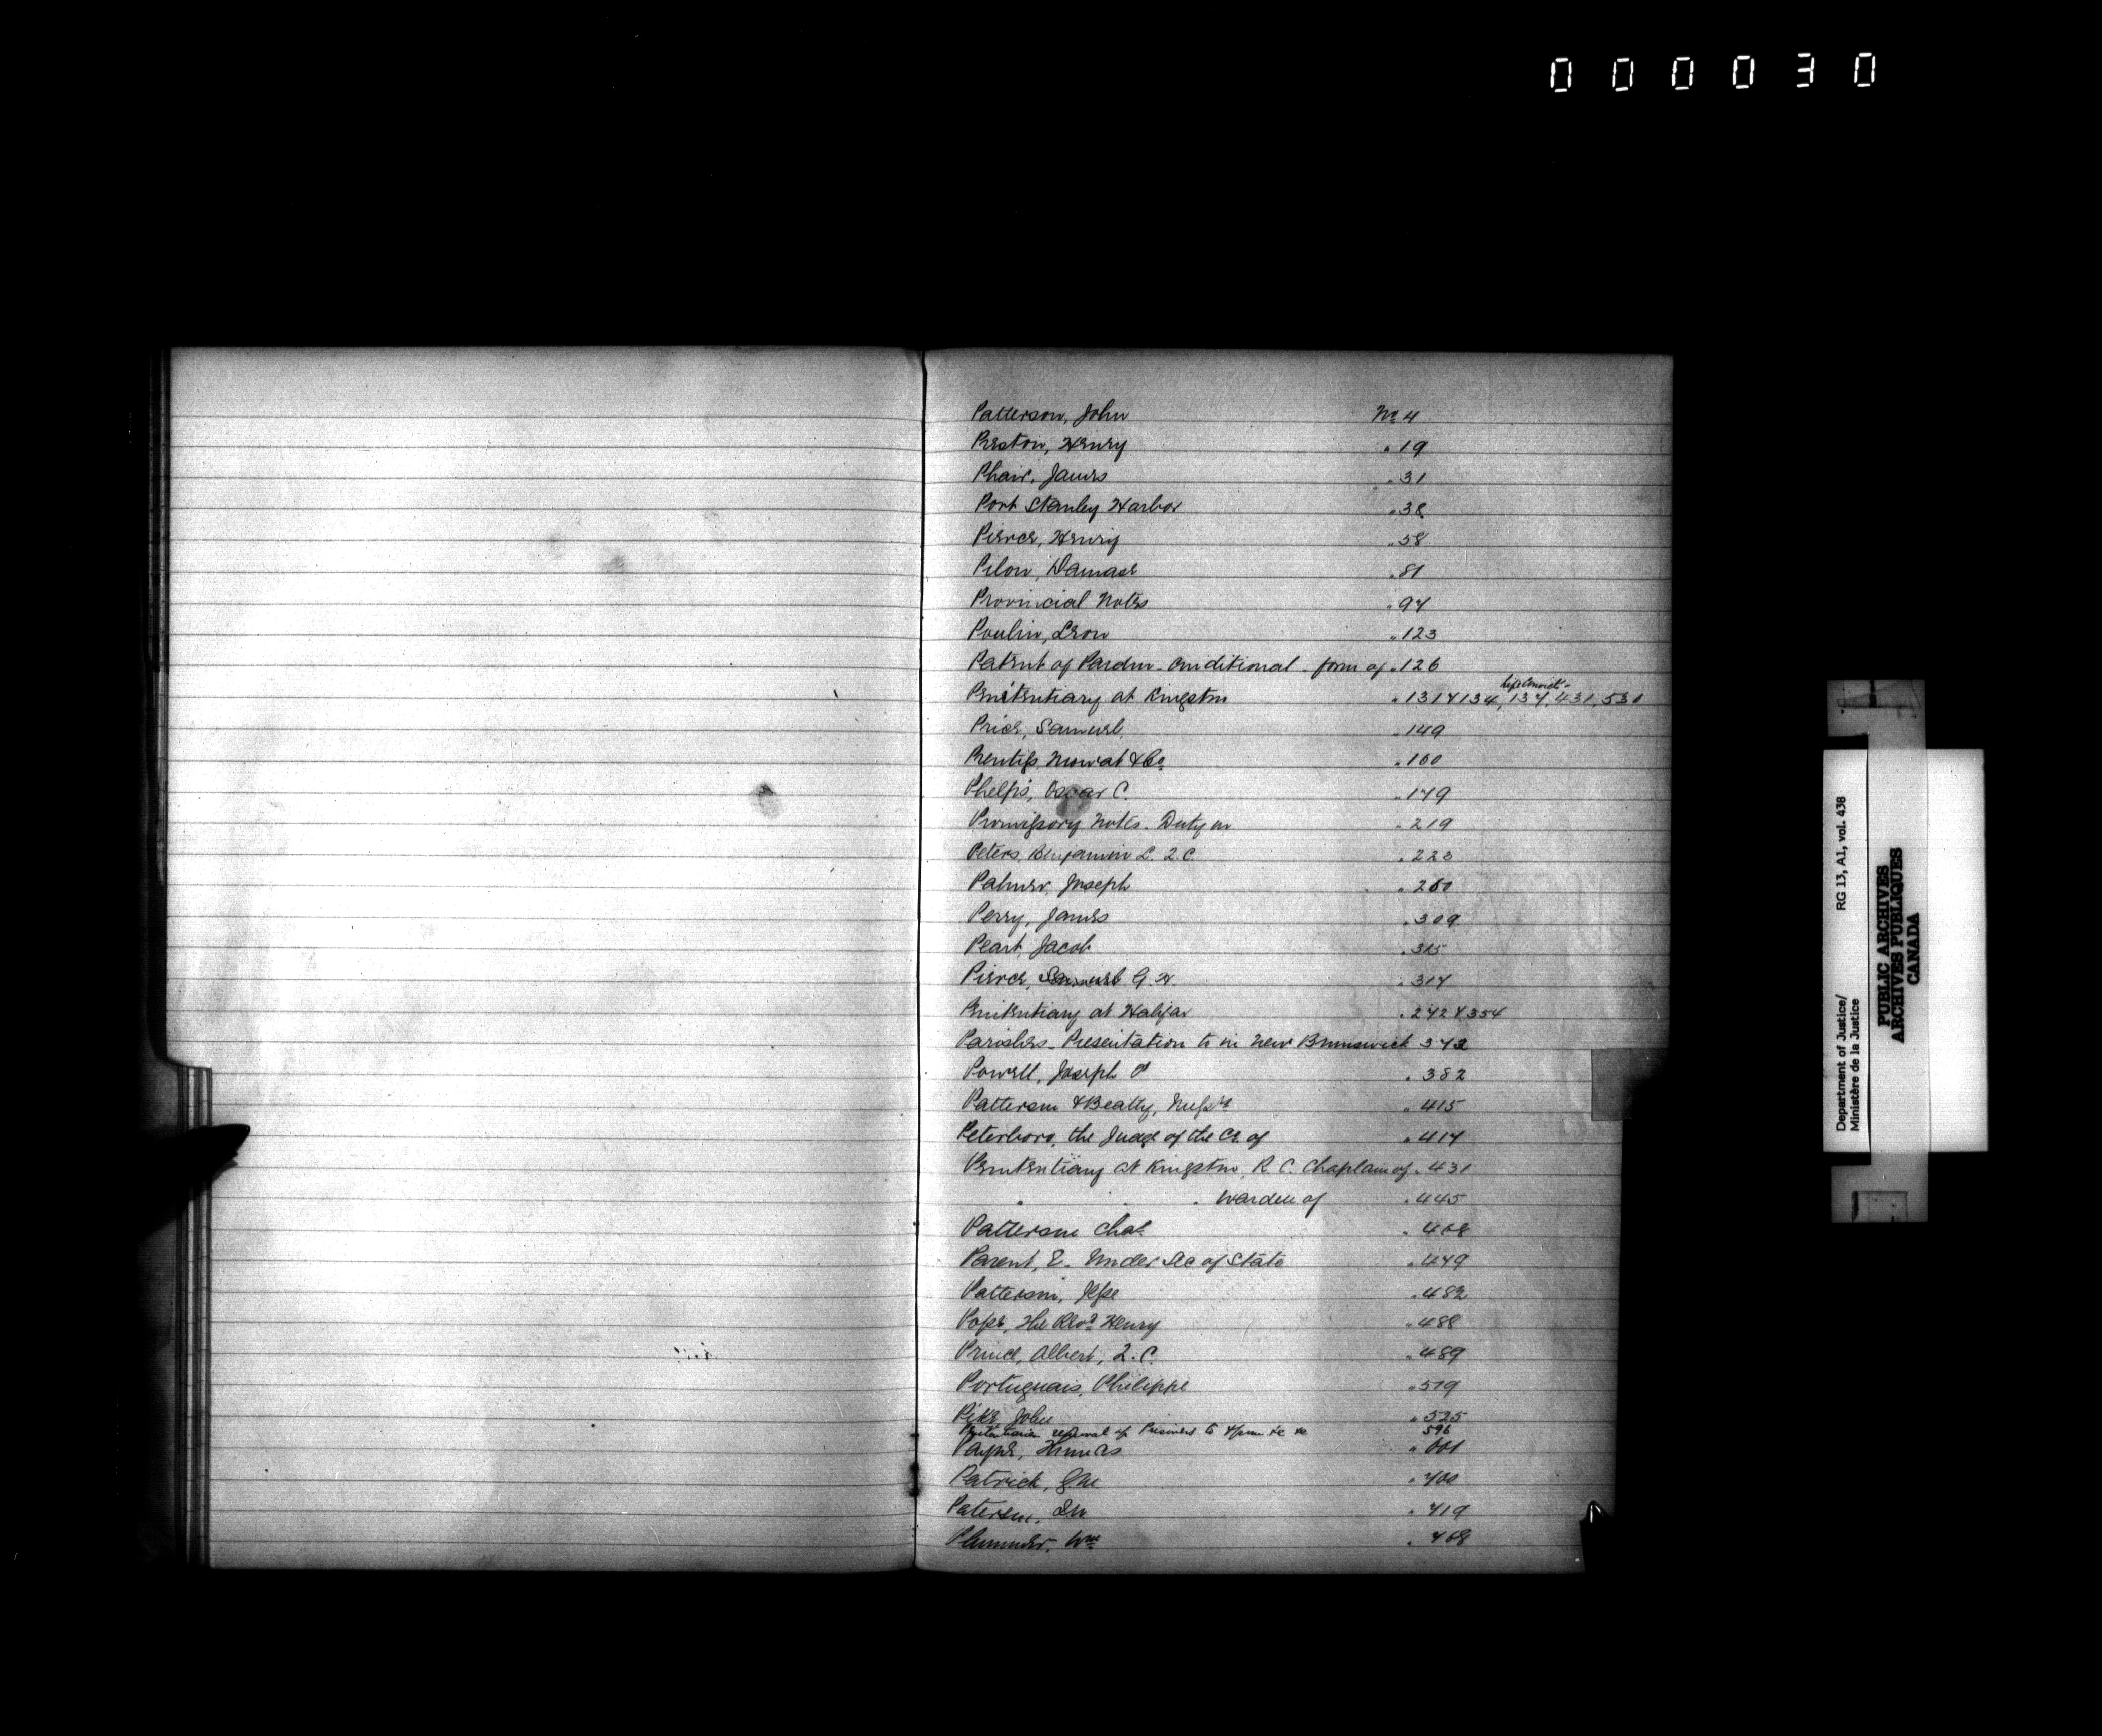 000030
Patterson, John No 4
Preston, Henry " 19
Phair, James " 31
Port Stanley Harbor " 38
Pierce, Henry " 58
Pilon, Damase " 81
Provincial Notes " 97
Poulin, Leon " 123
Patent of Pardon - Conditional - form of " 126
life Convicts -
Penitentiary at Kingston " 131 & 134, 137, 431, 530
Price, Samuel " 149
Prentiss, Mowat & Co " 160
Phelps, Oscar C. " 179
Promissory Notes - Duty on " 219
Peters, Benjamin L. Q.C. " 223
Palmer, Joseph " 260
Perry, James " 309
Peart, Jacob " 315
Pierce, Samuel G. H. " 317
Penitentiary at Halifax " 242 & 354
Parishes - Presentation to in New Brunswick 373
Powell, Joseph P " 382
Patterson & Beatty, Messrs " 415
Peterboro, the Judge of the Co. of " 417
Penitentiary at Kingston, R. C. Chaplain of " 431
" " " Warden of " 445
Patterson Chas. " 468
Parent, E. Under Sec of State " 479
Patterson, Jesse " 482
Pope, The Revd Henry " 488
Prince, Albert, Q.C. " 489
Portuguais, Philippe " 519
Pike, John " 525
removal of Prisoners to &c 596
Payne, " 601
Patrick, " 700
Paterson, " 719
Plummer, Wm " 768
Department of Justice/ RG 13, A1, vol. 438
Ministère de la Justice
PUBLIC ARCHIVES
ARCHIVES PUBLIQUES
CANADA